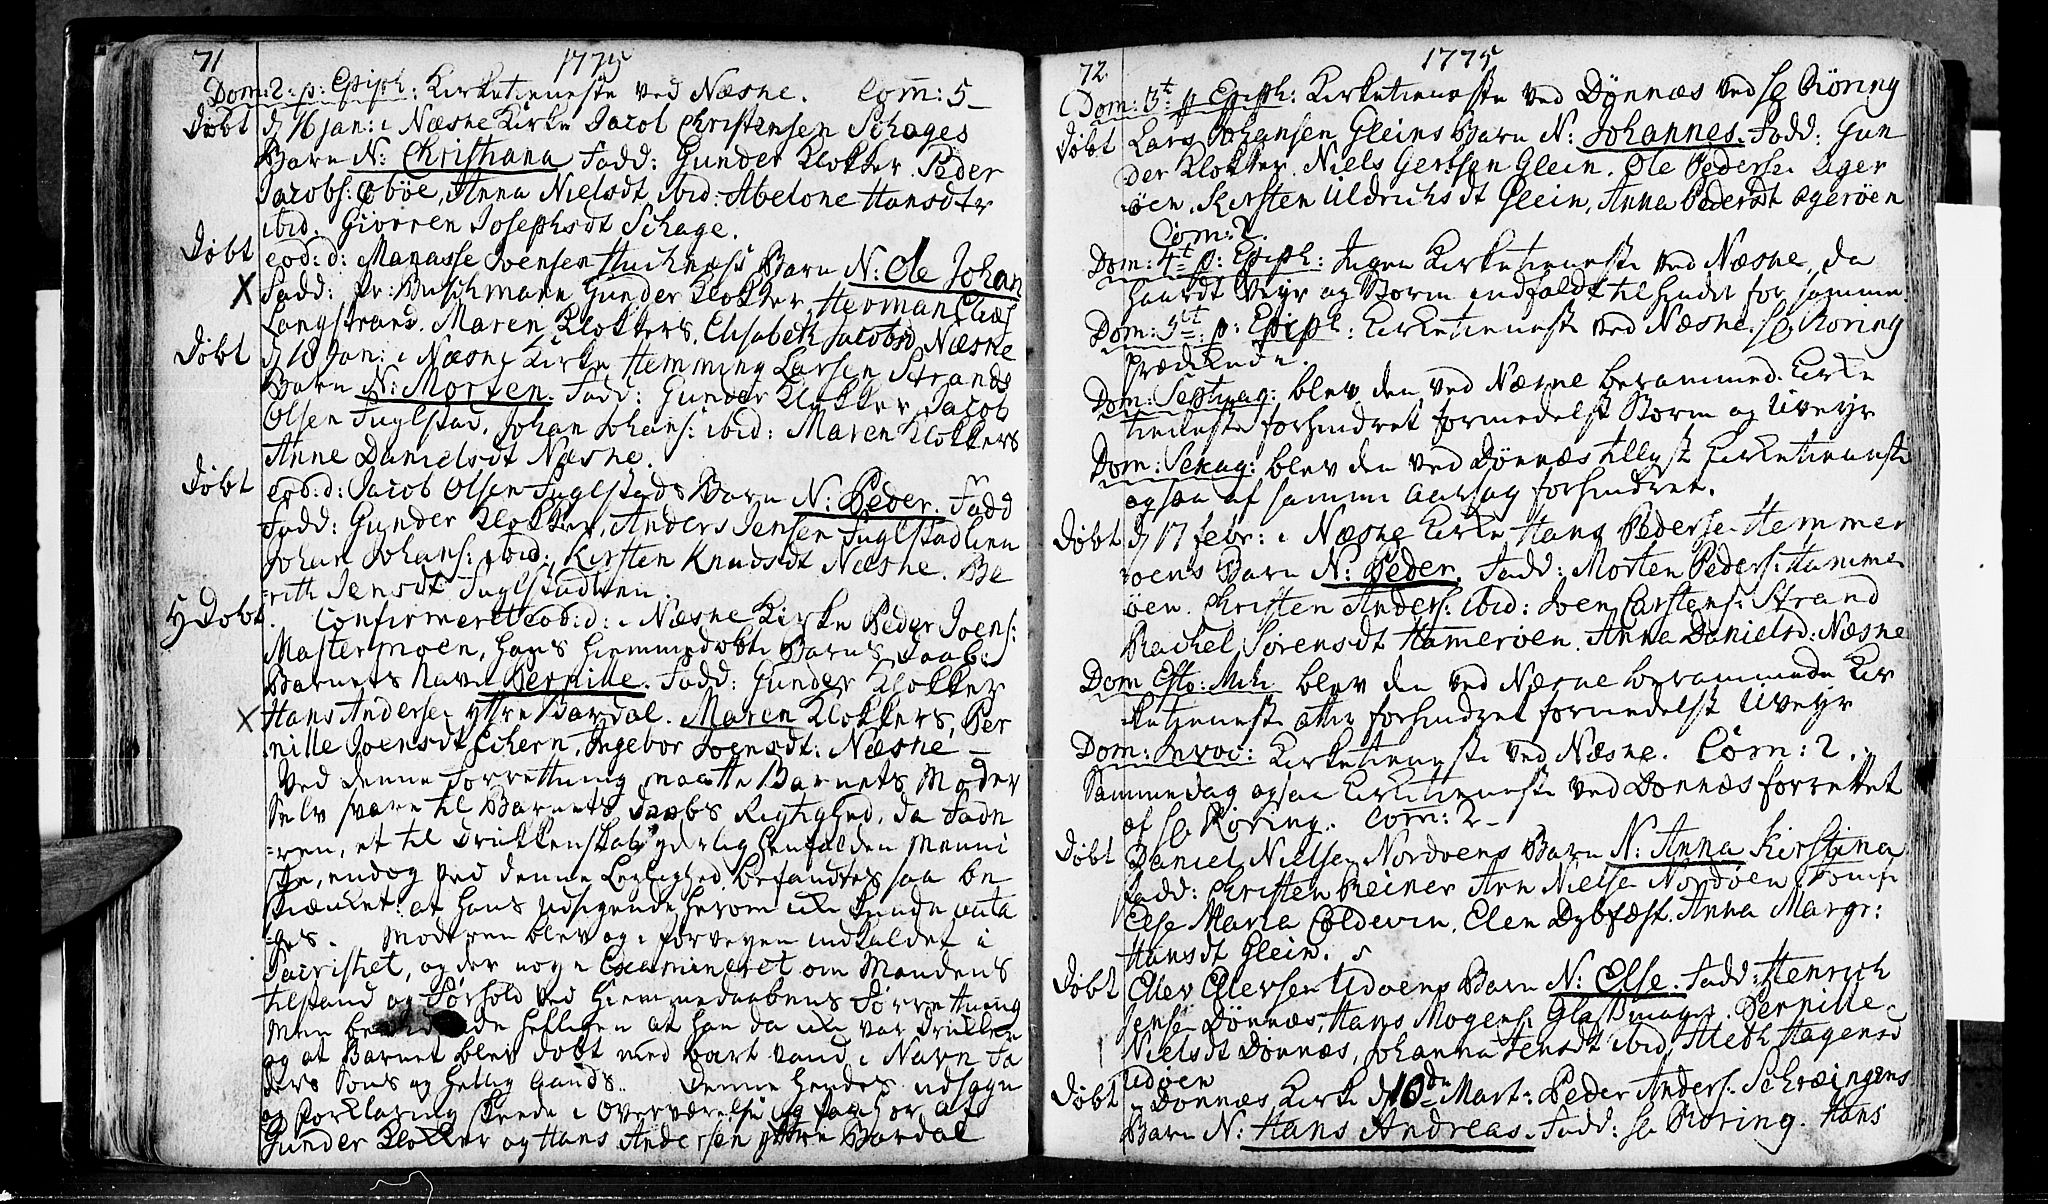 71
1775
Dom: 2. p: Epiph: Kirketieneste ved Næsne. Com: 5
Døbt d 16 jan: i Næsne Kirke Jacob Christensen Schages
Barn N: Christiana Fadd: Gunder Klokker. Peder
Jacobs: Anna Nielsdt ibid: Abelone Hansdtr
ibid. Giørren Josephsdt Schage.
Døbt eod: d: Manasse Joensen Barn N: Ole Johan
X Fadd: Hr: Buschmann Gunder Klokker, Herman
Langstrand. Maren Klokkers, Elisabeth Jacobsd Næsne
Døbt d 18 Jan: i Næsne Kirke Hemming Larsen Strands
Barn N: Morten. Fadd: Gunder Klokker, Jacob
Olsen Fuglstad, Johan Johans: ibid: Maren Klokkers
Anne Danielsdt Næsne.
Døbt eod: d: Jacob Olsen Fuglstads Barn N: Peder. Fadd
Fadd: Gunder Klokker, Anders Jensen Fuglstadlien
Johan Johans: ibid: Kirsten Knudsdt Næsne. Be
rith Jensdt Fuglstadlien.
Døbt. Confirmeret eod: d: i Næsne Kirke Peder Joens:
Mastermoen, hans hiemmedøbte Barns Daab:
Barnets Navn Pernille. Fadd: Gunder Klokker
X Hans Andersen yttre Bardal. Maren Klokkers, Per
nille Joensdt Ingebor Joensdt: Næsne
Ved denne Forrettning maatte Barnets Moder
selv svare til Barnets Daabs Rigtighed, da Fade
ren, et til Drikkenskab yderlig henfalden Menni
ske, endog ved denne Leylighed befandtes saa be
skienket: at hans udsigende herom ikke kunde anta
ges. Moderen blev og i forveyen indkaldet i
Sacristiet, og der nøye Examineret om Mandens
tilstand og Forhold ved hiemmedaabens Forrettning
Men helligen at han da ikke var drukken
og at Barnet blev døbt med bart vand i Navn Fa
ders Søns og Hellig Aands. Denne hendes udsagn
og Forklaring skeede i Overværelse og paahør af
Gunder Klokker og Hans Andersen yttre Bardal
72
1775
Dom: 3t p Epiph: Kirketieneste ved Dønnæs ved Hr Røring
Døbt Lars Johansen Gleins Barn N: Johannes. Fadd: Gun
der Klokker. Niels Gertsen Glein. Ole Pedersen Ager
øen. Kirsten Uldrichsdt Glein, Anna Pedersdt Agerøen
Com: 2.
Dom: 4t p: Epiph: Ingen Kirketieneste ved Næsne, da
haardt Veyr og Storm indfaldt til hinder for samme.
Dom: 5t: p: Epiph: Kirketieneste ved Næsne. Hr Røring
prædikende.
Dom: Septuag: blev den ved Næsne berammed Kirke
tieneste forhindret formedelst Storm og Uveyr
Dom: Sexag: blev den ved Dønnæs tillyste Kirketieneste
ogsaa af samme Aarsag forhindret.
Døbt d 17 febr: i Næsne Kirke Hans Pedersen Hemmer
øens Barn N: Peder. Fadd: Morten Peders: Hamme
øen. Christen Anders: ibid: Joen Carstens: Strand
Rachel Sørensdt Hamerøen. Anna Danielsd: Næsne
Dom Esto: Mihi blev den ved Næsne berammede Kir
ketieneste atter forhindret formedelst Uveyr
Dom: Invoc: Kirketieneste ved Næsne. Com: 2.
Samme dag ogsaa Kirketieneste ved Dønnæs forrettet
af Hr Røring. Com: 2
Døbt Daniel Nielsen Nordøens Barn N: Anna Kirstina
Fadd: Christen Reiner Arn Nielsen Nordøen
Else Maria Coldevin. Elen Dybfæst. Anna Margr:
Hansdt Glein.
Døbt Eller Ellersen Udøens Barn N: Else. Fadd: Henrich
Jensen Dønnæs, Hans Mogens: Glasmager. Pernille
Nielsdt Dønnæs, Johanna Jensdt ibid, Aleth Hagensd
Udøen
Døbt i Dønnæs Kirke d 10de Mart: Peder Anders:
Barn N: Hans Andreas. Fadd: Hr Røring. Hans